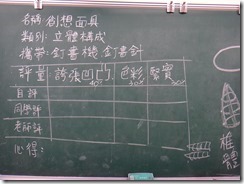 名稱:創想面具
類別:立體構成
攜帶:釘書機 釘書針
評量 誇張凹凸 40% 色彩 30% 緊實 30%
自評
同學評
老師評
心得:
椎體